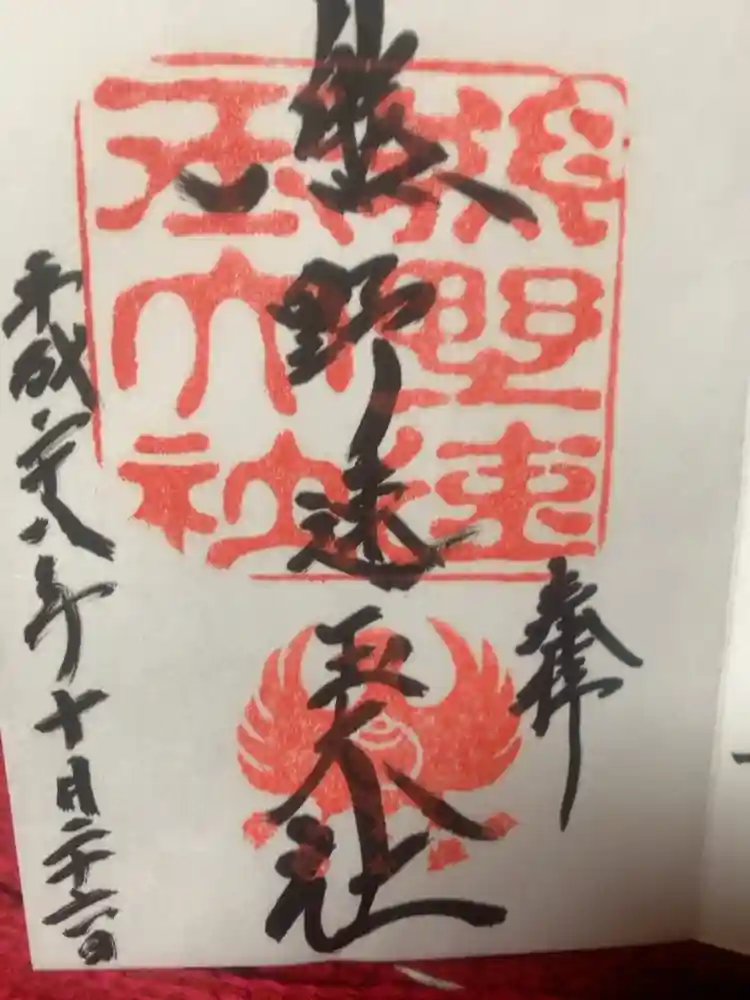 奉拝
熊野速玉大社
熊野速
玉大社
平成二十八年十月二十六日